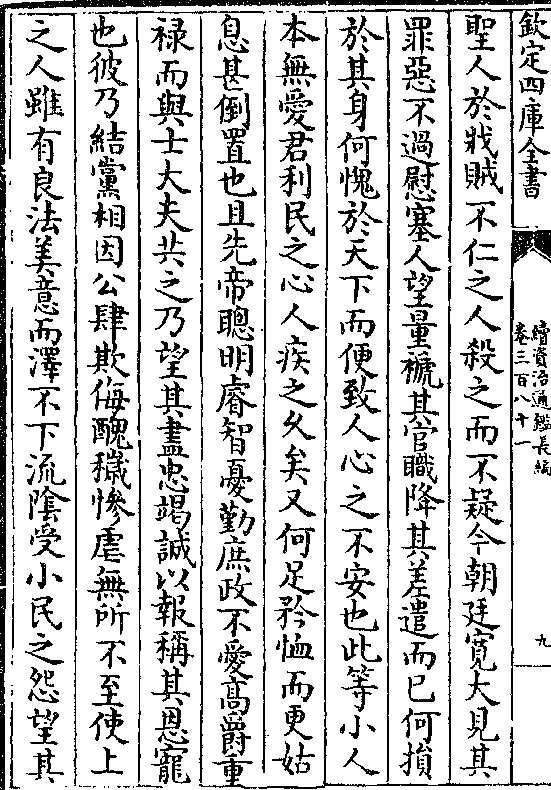 欽定四庫全書
續資治通鑑長編
卷三百八十一
九
聖人於戕賊不仁之人殺之而不疑今朝廷寛大見其
罪惡不過慰塞人望量褫其官職降其差遣而已何損
於其身何愧於天下而便致人心之不安也此等小人
本無愛君利民之心人疾之久矣又何足矜恤而更姑
息甚倒置也且先帝聰明睿智憂勤庶政不愛髙爵重
禄而與士大夫共之乃望其盡忠竭誠以報稱其恩寵
也彼乃結黨相因公肆欺侮醜穢慘虐無所不至使上
之人雖有良法美意而澤不下流隂受小民之怨望其